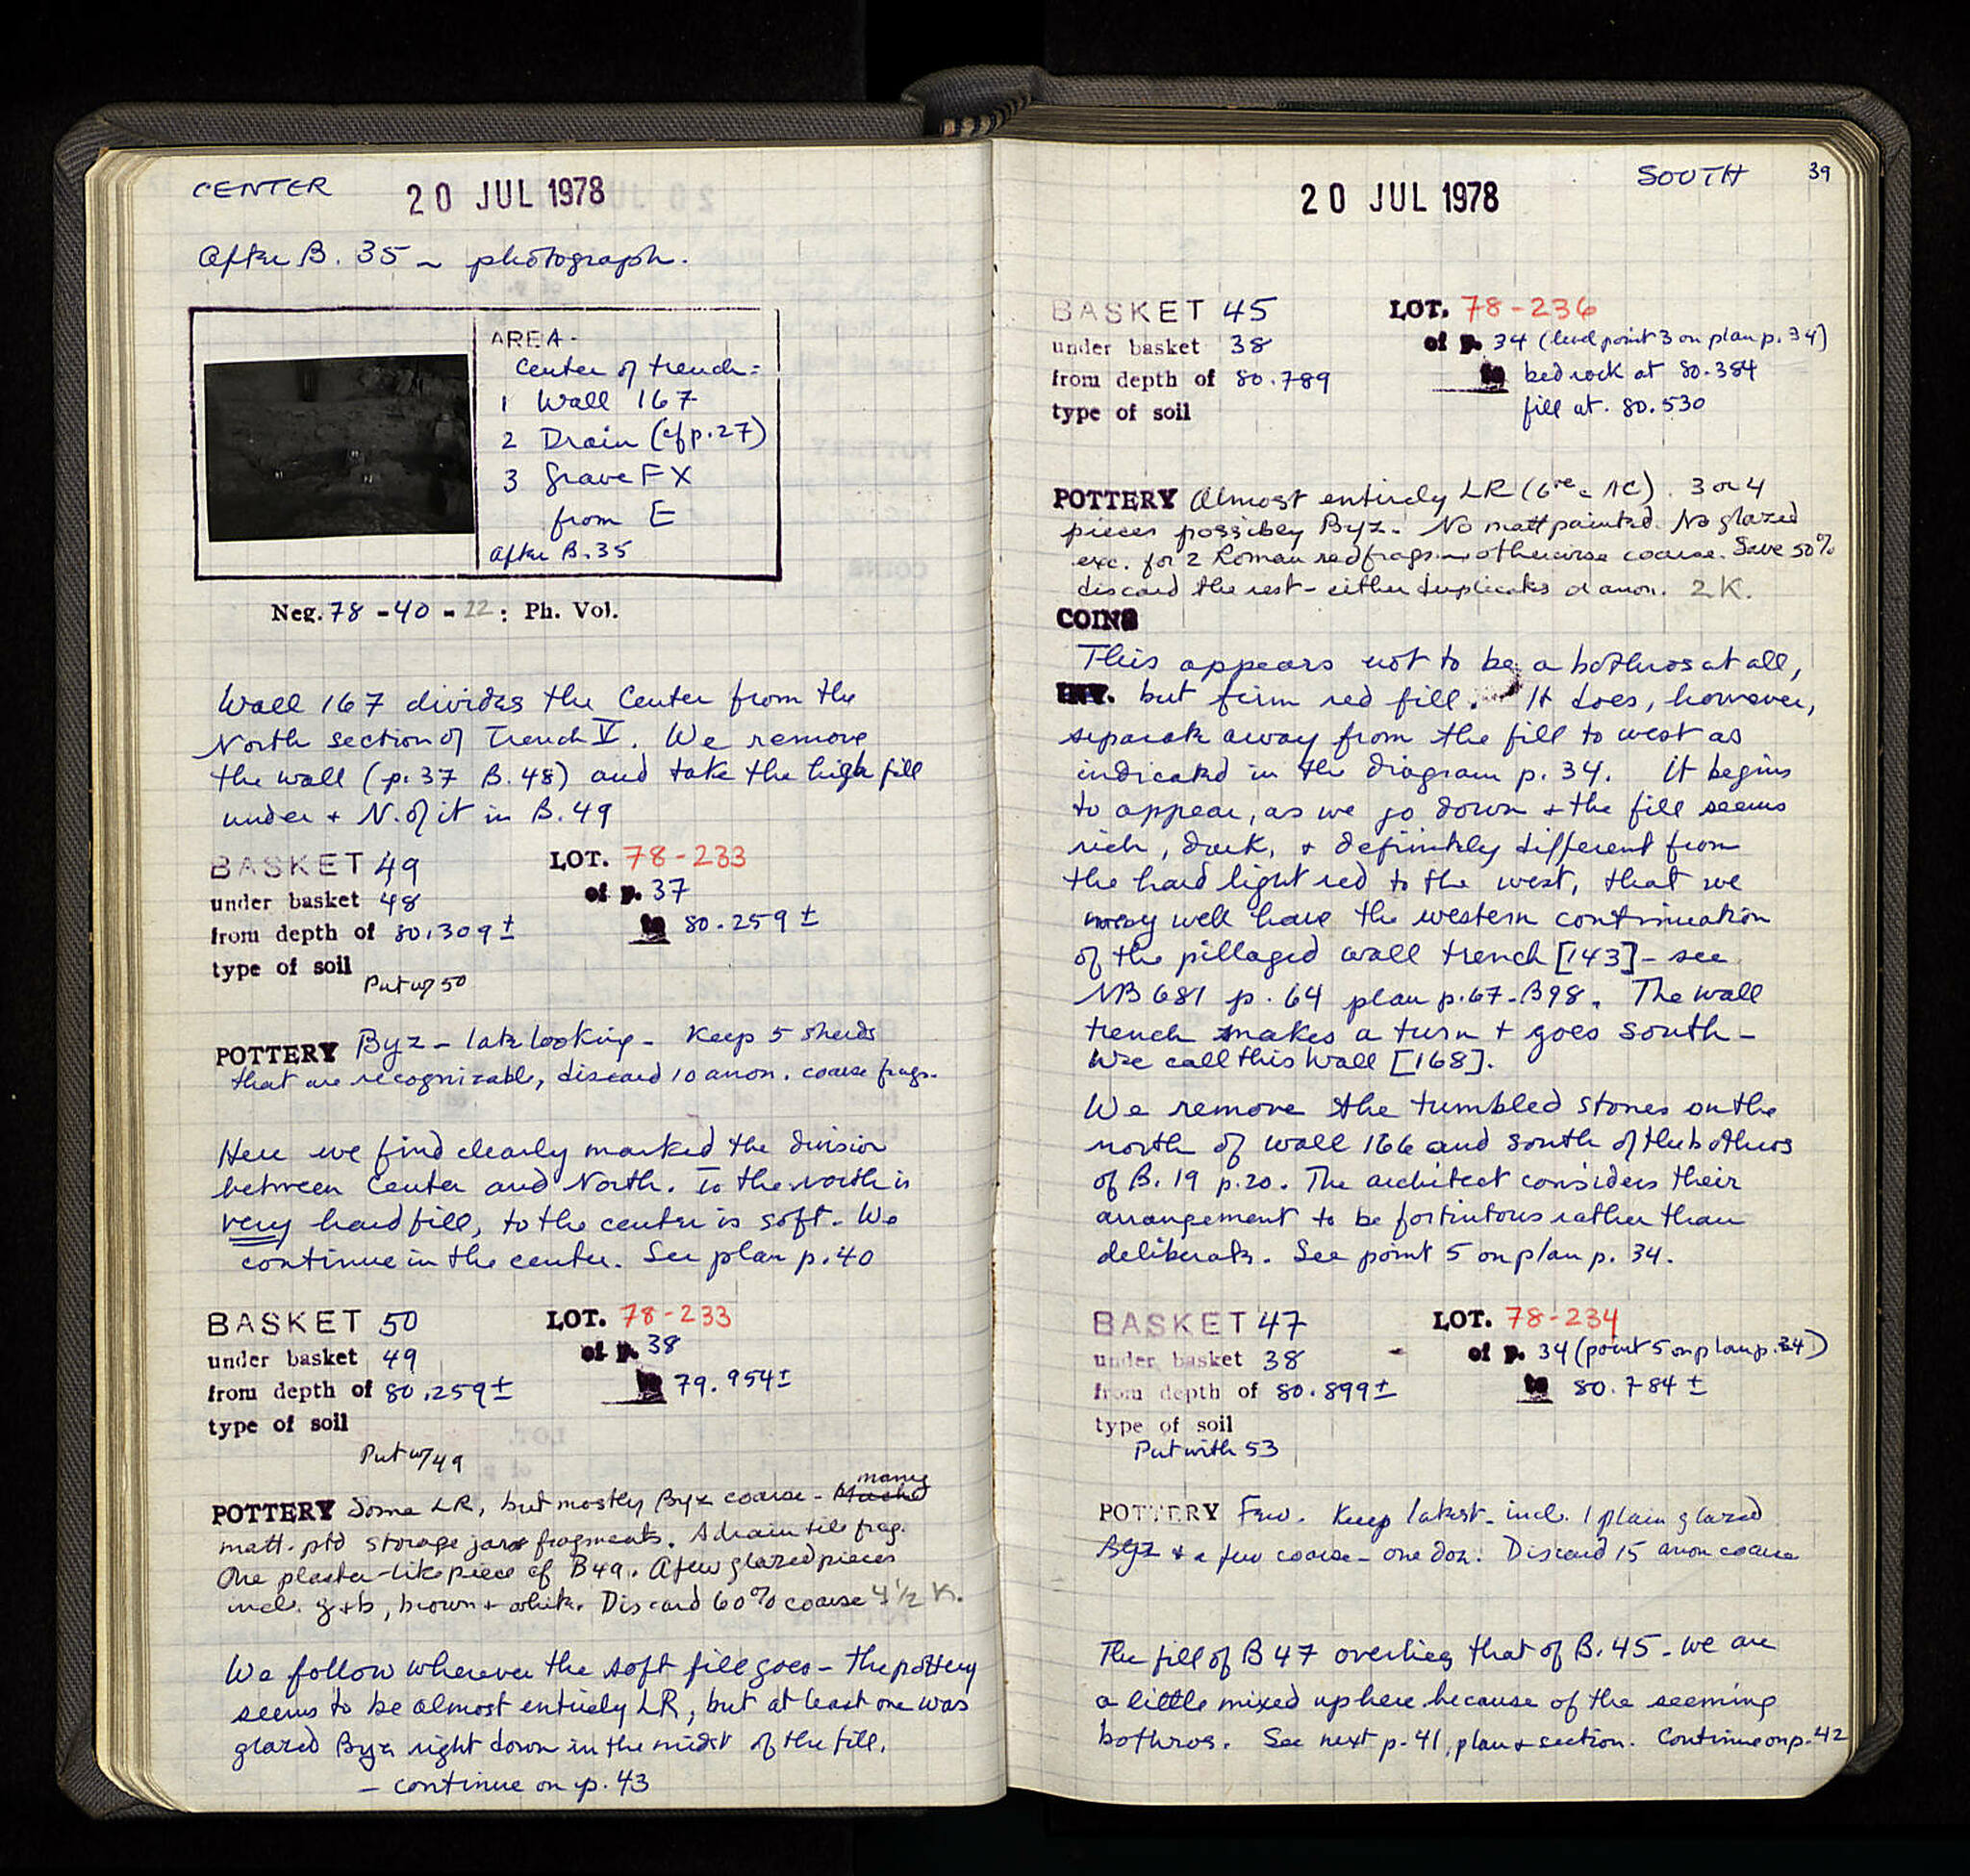 CENTER
20 JUL 1978
After B. 35 ~ photograph.
AREA-
Center of trench:
1 Wall 167
2 Drain (cf p. 27)
3 Grave F X
from E
After B. 35
Neg. 78-40-22: Ph. Vol.
Wall 167 divides the Center from the
North section of Trench V. We remove
the wall (p. 37 B. 48) and take the high fill
under + N. of it in B. 49
BASKET 49 LOT. 78-233
under basket 48 of p. 37
from depth of 80.309 ± to 80.259 ±
type of soil
Put w/ 50
POTTERY Byz - late looking - Keep 5 sherds
that are recognizable, discard 10 anon. coarse frags.
Here we find clearly marked the division
between Center and North. To the north is
very hard fill, to the center is soft. We
continue in the center. See plan p. 40
BASKET 50 LOT. 78-233
under basket 49 of p. 38
from depth of 80.259 ± to 79.954 ±
type of soil
Put w/ 49
POTTERY Some LR, but mostly Byz coarse - many
matt. ptd storage jar fragments. A drain tile frag.
One plaster-like piece cf B49. A few glazed pieces
incl. g+b, brown + white. Discard 60% coarse 4 1/2 K.
We follow wherever the soft fill goes - the pottery
seems to be almost entirely LR, but at least one was
glazed Byz right down in the midst of the fill.
- continue on p. 43
SOUTH 39
20 JUL 1978
BASKET 45 LOT. 78-236
under basket 38 of p. 34 (level point 3 on plan p. 34)
from depth of 80.789 to bedrock at 80.384
type of soil fill at. 80.530
POTTERY Almost entirely LR (6 c AC). 3 or 4
pieces possibley Byz. No matt painted. No glazed
exc. for 2 Roman red frags - otherwise coarse. Save 50%
discard the rest - either duplicates or anon. 2 K.
COINS
This appears not to be a bothros at all,
INV. but firm red fill. It does, however,
separate away from the fill to west as
indicated in the diagram p. 34. It begins
to appear, as we go down + the fill seems
rich, dark, + definitely different from
the hard light red to the west, that we
may well have the western continuation
of the pillaged wall trench [143] - see
NB 681 p. 64 plan p. 67 - B98. The wall
trench makes a turn + goes south -
We call this Wall [168].
We remove the tumbled stones on the
north of wall 166 and south of the bothros
of B. 19 p. 20. The architect considers their
arrangement to be fortuitous rather than
deliberate. See point 5 on plan p. 34.
BASKET 47 LOT. 78-234
under basket 38 - of p. 34 (point 5 on plan p. 34)
from depth of 80.899 ± to 80.784 ±
type of soil
Put with 53
POTTERY Few. Keep latest - incl. 1 plain glazed
Byz + a few coarse - one doz. Discard 15 anon coarse
The fill of B 47 overlies that of B. 45 - we are
a little mixed up here because of the seeming
bothros. See next p. 41, plan + section. Continue on p. 42